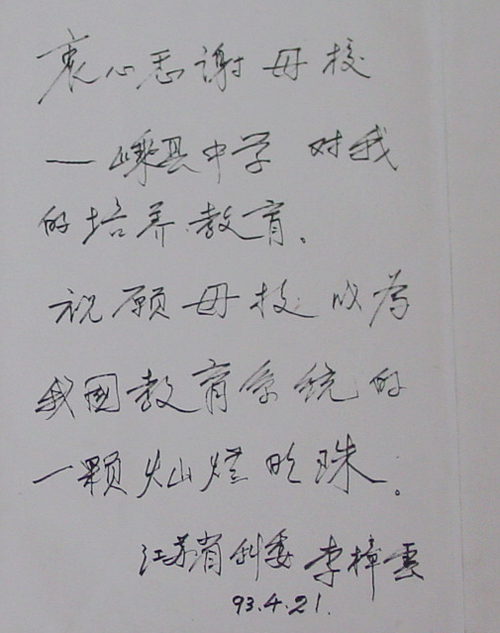 衷心感谢母校
—嵊县中学 对我
的培养教育。
祝愿母校成为
我国教育系统的
一颗灿烂明珠。
江苏省科委 李樟云
93.4.21.